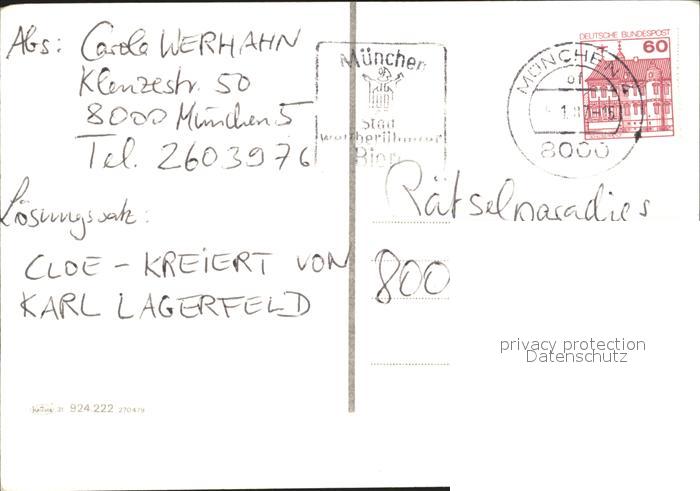 Abs: Carola WERHAHN
Klenzestr. 50
8000 München 5
Tel. 2603976
Lösungssatz:
CLOE - KREIERT VON
KARL LAGERFELD
31 924.222 270479
München
Stadt
weltberühmter
Biere
MÜNCHEN
of
8000
DEUTSCHE BUNDESPOST
60
Rätselparadies
800
privacy protection
Datenschutz